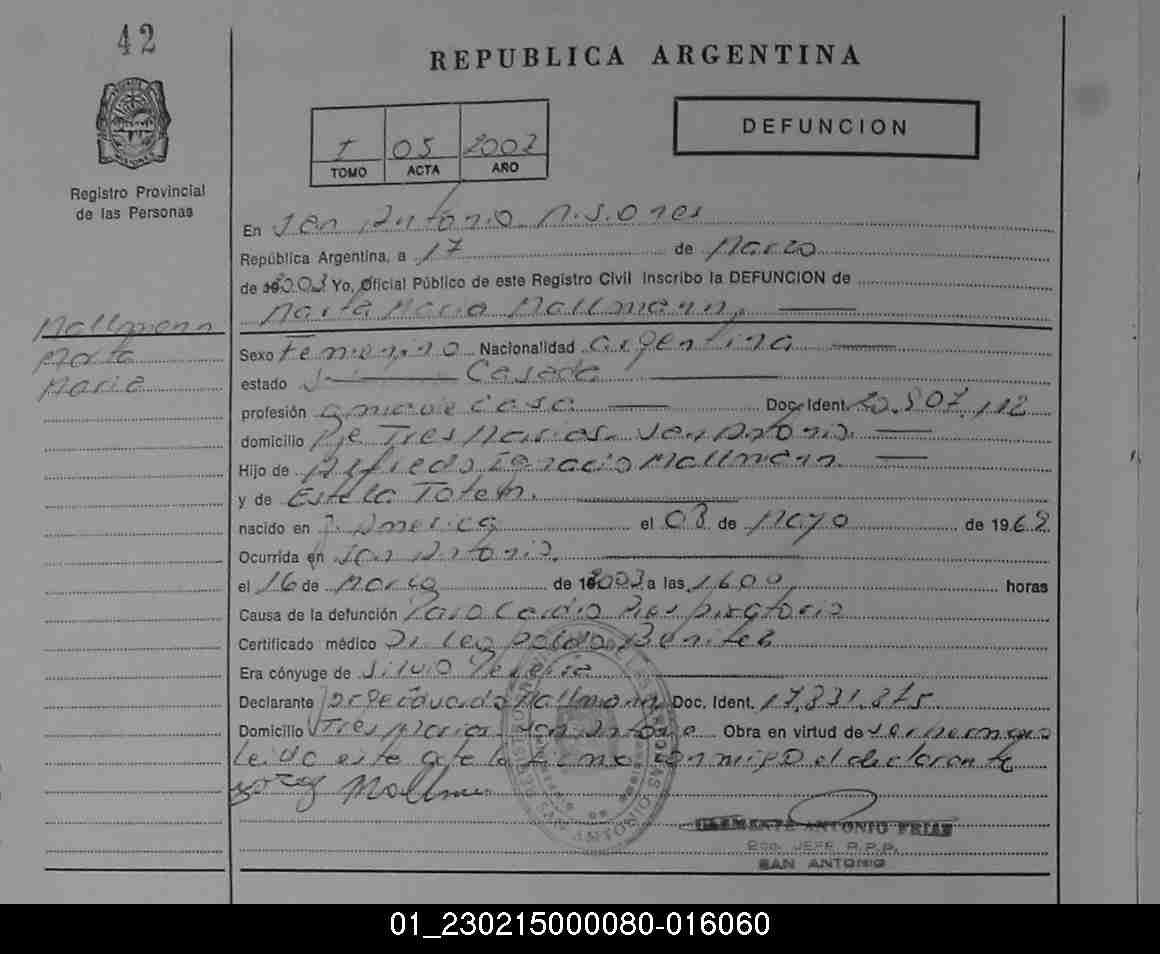 42
REPUBLICA ARGENTINA
DEFUNCION
I 05 2002
TOMO ACTA AÑO
Registro Provincial
de las Personas
En San Antonio Misiones
República Argentina, a 17 de Marzo
de Yo, Oficial Público de este Registro Civil inscribo la DEFUNCION de
Marta Maria Mallmann,
Mallmann
Marta
Maria
Sexo Femenino Nacionalidad argentina
estado Casada
profesión ama de casa Doc. Ident.
domicilio Pje Tres Marias. San Antonio.
Hijo de Alfredo Ignacio Mallmann
y de Estela
nacido en America el 08 de Mayo de 1969
Ocurrida en San Antonio.
el 16 de Marzo de a las 1600 horas
Causa de la defunción Paro Cardio Respiratorio
Certificado médico Dr Leopoldo Benitez
Era cónyuge de Silvio
Declarante Jorge Eduardo Mallmann Doc. Ident. 17.831.875
Domicilio Tres Marias San Antonio Obra en virtud de ser hermano
Leido este acta la firma conmigo el declarante
CLEMENTE ANTONIO FRIAS
JEFE R.P.P.
SAN ANTONIO
01_230215000080-016060